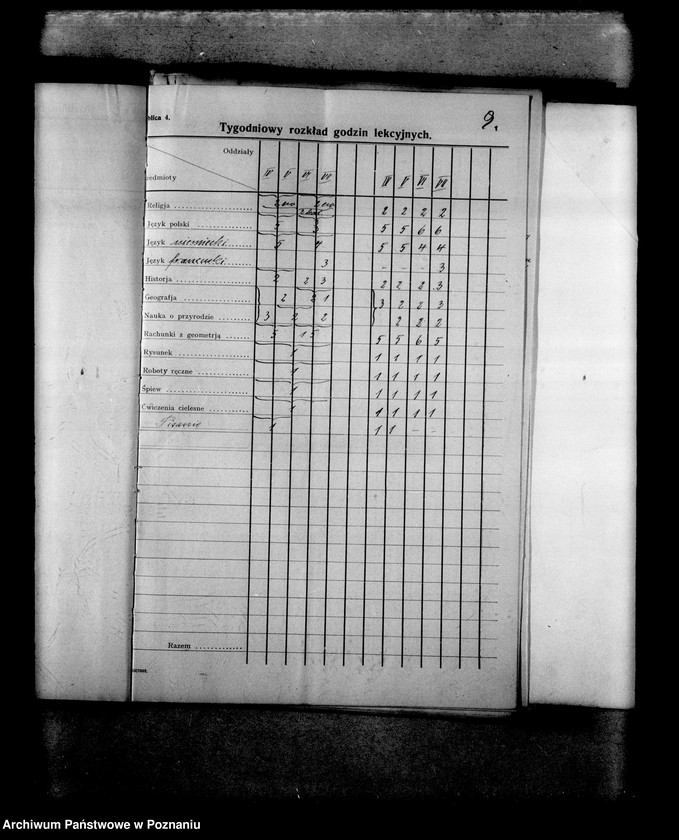 blica 4.
9.
Tygodniowy rozkład godzin lekcyjnych.
Oddziały
IV V VI VII IV V VI VII
edmioty
Religja 2 2 2 2 2 2
Język polski 5 3 5 5 6 6
Język niemiecki 5 4 5 5 4 4
Język francuski 3 - - - 3
Historja 2 2 3 2 2 2 3
Geografja 2 2 1 3 2 2 3
Nauka o przyrodzie 3 2 2 2 2 2
Rachunki z geometrją 5 1 5 5 5 6 5
Rysunek 1 1 1 1 1
Roboty ręczne 1 1 1 1 1
Śpiew 1 1 1 1 1
Ćwiczenia cielesne 1 1 1 1 1
Pisanie 1 1 1 - -
Razem
Archiwum Państwowe w Poznaniu